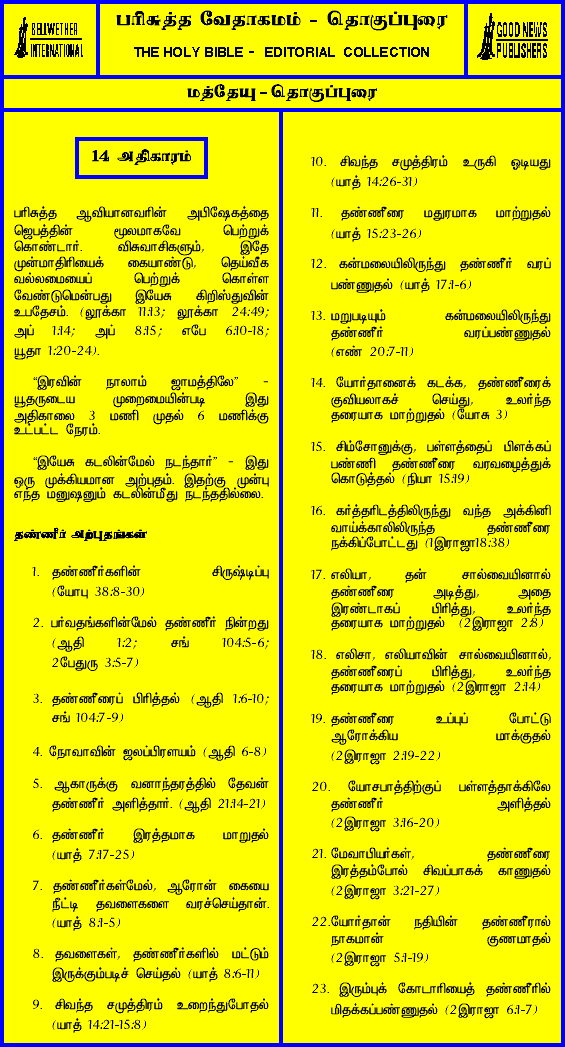 BELLWETHER
INTERNATIONAL
பரிசுத்த வேதாகமம் - தொகுப்புரை
THE HOLY BIBLE - EDITORIAL COLLECTION
GOOD NEWS
PUBLISHERS
மத்தேயு - தொகுப்புரை
14 அதிகாரம்
பரிசுத்த ஆவியானவரின் அபிஷேகத்தை
ஜெபத்தின் மூலமாகவே பெற்றுக்
கொண்டார். விசுவாசிகளும், இதே
முன்மாதிரியைக் கையாண்டு, தெய்வீக
வல்லமையைப் பெற்றுக் கொள்ள
வேண்டுமென்பது இயேசு கிறிஸ்துவின்
உபதேசம். (லூக்கா 11:13; லூக்கா 24:49;
அப் 1:14; அப் 8:15; எபே 6:10-18;
யூதா 1:20-24).
“இரவின் நாலாம் ஜாமத்திலே” -
யூதருடைய முறைமையின்படி இது
அதிகாலை 3 மணி முதல் 6 மணிக்கு
உட்பட்ட நேரம்.
“இயேசு கடலின்மேல் நடந்தார்” - இது
ஒரு முக்கியமான அற்புதம். இதற்கு முன்பு
எந்த மனுஷனும் கடலின்மீது நடந்ததில்லை.
தண்ணீர் அற்புதங்கள்
1. தண்ணீர்களின் சிருஷ்டிப்பு
(யோபு 38:8-30)
2. பர்வதங்களின்மேல் தண்ணீர் நின்றது
(ஆதி 1:2; சங் 104:5-6;
2பேதுரு 3:5-7)
3. தண்ணீரைப் பிரித்தல் (ஆதி 1:6-10;
சங் 104:7-9)
4. நோவாவின் ஜலப்பிரளயம் (ஆதி 6-8)
5. ஆகாருக்கு வனாந்தரத்தில் தேவன்
தண்ணீர் அளித்தார். (ஆதி 21:14-21)
6. தண்ணீர் இரத்தமாக மாறுதல்
(யாத் 7:17-25)
7. தண்ணீர்கள்மேல், ஆரோன் கையை
நீட்டி தவளைகளை வரச்செய்தான்.
(யாத் 8:1-5)
8. தவளைகள், தண்ணீர்களில் மட்டும்
இருக்கும்படிச் செய்தல் (யாத் 8:6-11)
9. சிவந்த சமுத்திரம் உறைந்துபோதல்
(யாத் 14:21-15:8)
10. சிவந்த சமுத்திரம் உருகி ஓடியது
(யாத் 14:26-31)
11. தண்ணீரை மதுரமாக மாற்றுதல்
(யாத் 15:23-26)
12. கன்மலையிலிருந்து தண்ணீர் வரப்
பண்ணுதல் (யாத் 17:1-6)
13. மறுபடியும் கன்மலையிலிருந்து
தண்ணீர் வரப்பண்ணுதல்
(எண் 20:7-11)
14. யோர்தானைக் கடக்க, தண்ணீரைக்
குவியலாகச் செய்து, உலர்ந்த
தரையாக மாற்றுதல் (யோசு 3)
15. சிம்சோனுக்கு, பள்ளத்தைப் பிளக்கப்
பண்ணி தண்ணீரை வரவழைத்துக்
கொடுத்தல் (நியா 15:19)
16. கர்த்தரிடத்திலிருந்து வந்த அக்கினி
வாய்க்காலிலிருந்த தண்ணீரை
நக்கிப்போட்டது (1இராஜா18:38)
17. எலியா, தன் சால்வையினால்
தண்ணீரை அடித்து, அதை
இரண்டாகப் பிரித்து, உலர்ந்த
தரையாக மாற்றுதல் (2இராஜா 2:8)
18. எலிசா, எலியாவின் சால்வையினால்,
தண்ணீரைப் பிரித்து, உலர்ந்த
தரையாக மாற்றுதல் (2இராஜா 2:14)
19. தண்ணீரை உப்புப் போட்டு
ஆரோக்கிய மாக்குதல்
(2இராஜா 2:19-22)
20. யோசபாத்திற்குப் பள்ளத்தாக்கிலே
தண்ணீர் அளித்தல்
(2இராஜா 3:16-20)
21. மேவாபியர்கள், தண்ணீரை
இரத்தம்போல் சிவப்பாகக் காணுதல்
(2இராஜா 3:21-27)
22.யோர்தான் நதியின் தண்ணீரால்
நாகமான் குணமாதல்
(2இராஜா 5:1-19)
23. இரும்புக் கோடாரியைத் தண்ணீரில்
மிதக்கப்பண்ணுதல் (2இராஜா 6:1-7)